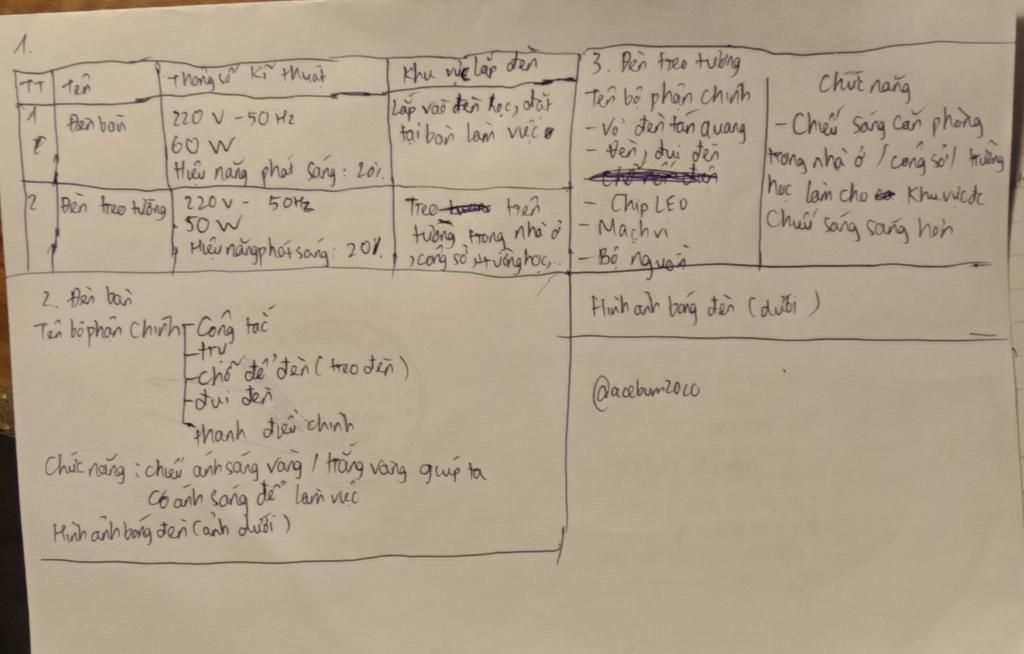 1.
TT Tên Thông số Kĩ thuật Khu vực lắp đèn
1 Đèn bàn 220 V - 50 Hz Lắp vào đèn học, đặt
60 W tại bàn làm việc
Hiệu năng phát sáng: 20%
2 Đèn treo tường 220 V - 50Hz Treo trên
50 W tường trong nhà ở
Hiệu năng phát sáng: 20% , công sở, trường học,..
2. Đèn bàn
Tên bộ phận chính Công tắc
trụ
chỗ để đèn (treo đèn)
đui đèn
thanh điều chỉnh
Chức năng: chiếu ánh sáng vàng / trắng vàng giúp ta
Có ánh sáng để làm việc
Hình ảnh bóng đèn (ảnh dưới)
3. Đèn treo tường
Tên bộ phận chính
- Vỏ đèn tán quang
- Đèn, đui đèn
- Chip LED
- Mạch vi
- Bộ nguồn
Chức năng
- Chiếu sáng căn phòng
trong nhà ở / công sở / trường
học làm cho Khu vực đc
chiếu sáng sáng hơn
Hình ảnh bóng đèn (dưới)
@acebum2020